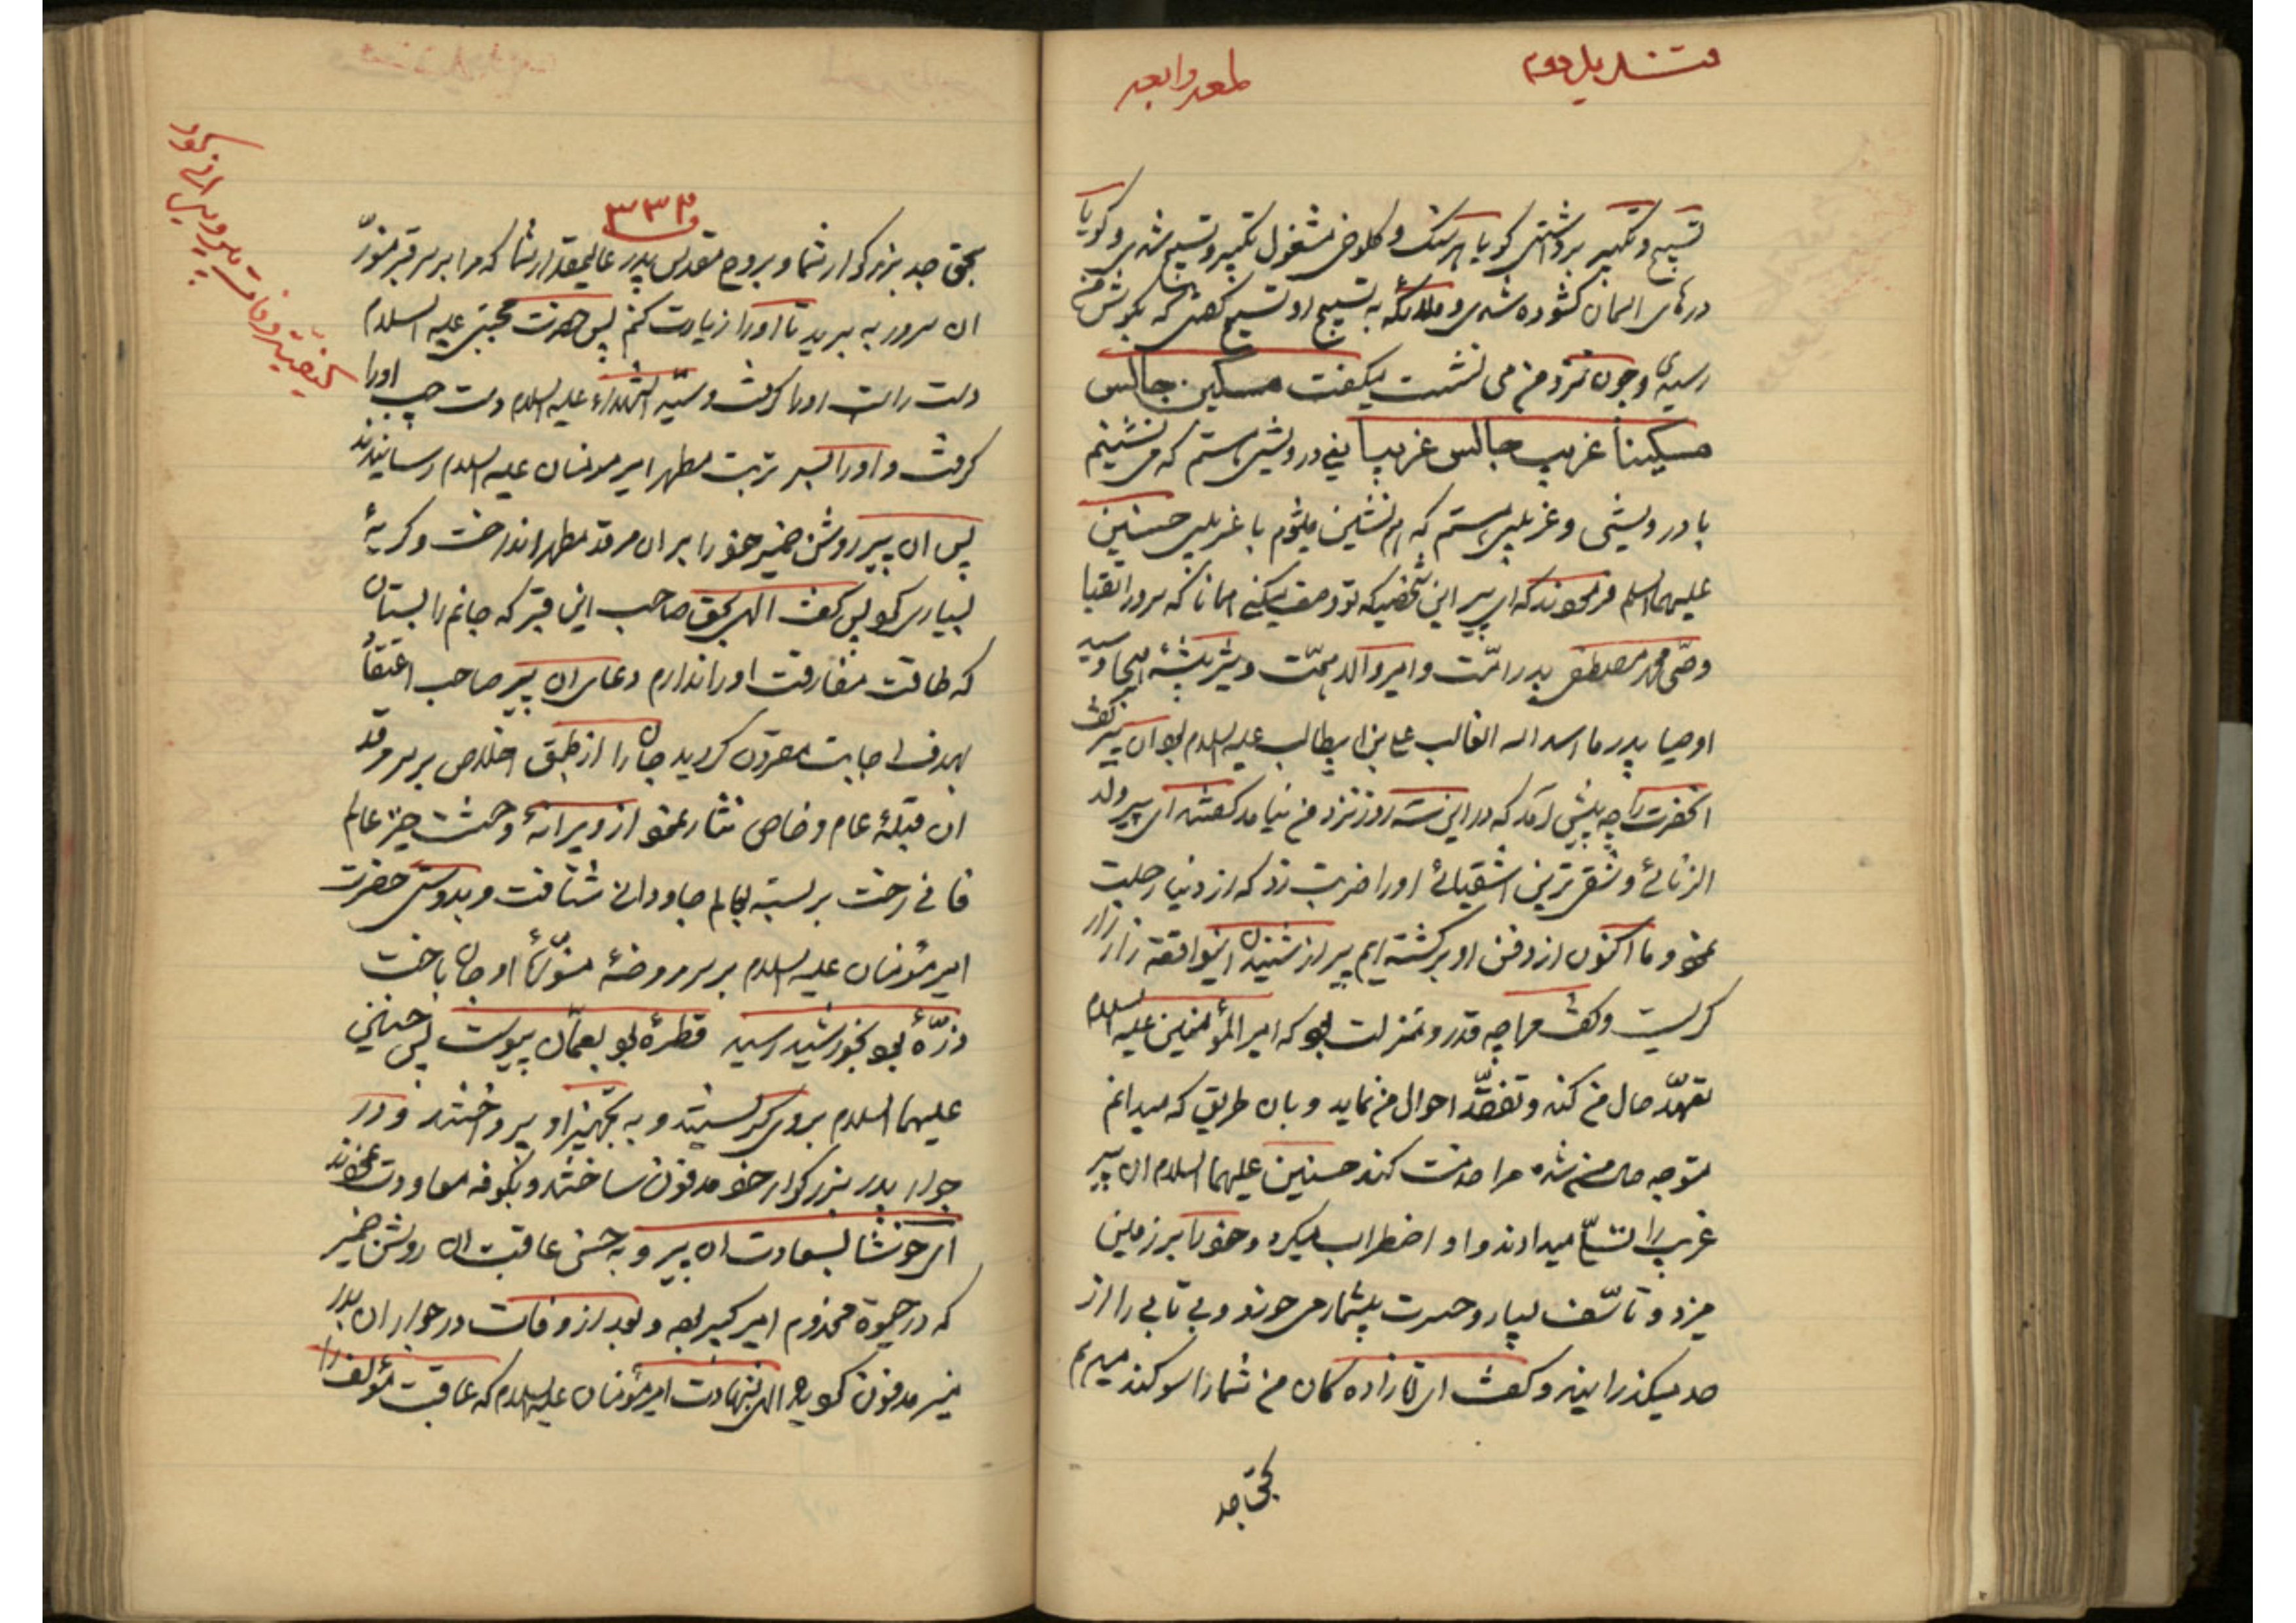 قندیل دوم
لمعه رابعه
تسبیح و تکبیر برداشتی کویا هر سنک و کلوخی مشغول تکبیر و تسبیح شدی و کویا
درهای اسمان کشوده شدی و ملائکه به تسبیح او تسبیح کفتی که بکوش من
رسیدی و چون نزد من می نشست میکفت مسکین جالس
مسکیناً غریب جالس غریباً یعنی درویشی هستم که می نشینم
با درویشی و غریبی هستم که هم نشین میشوم با غریبی حسنین
علیهما السلام فرمودند که ای پیر این شخصیکه تو وصف میکنی همانا که سرور اتقیا
وصی محمد مصطفی پدر امت و امیر والد همت و شیر بیشهٔ هیجا و سید
اوصیا پدر ما اسد الله الغالب علی بن ابیطالب علیه السلام بود ان پیر کفت
انحضرت را چه پیش آمد که در این سه روز نزد من نیامد کفتند ای پیر ولد
الزنائی و شقی ترین اشقیائی او را ضربت زد که از دنیا رحلت
نمود و ما اکنون از دفن او برکشته ایم پیر از شنیدن اینواقعه زار زار
کریست و کفت مرا چه قدر و منزلت بود که امیر المؤمنین علیه السلام
تعهد حال من کند و تفقد احوال من نماید و بان طریق که میدانم
متوجه حال من شده مرا خدمت کند حسنین علیهما السلام ان پیر
غریب را تسلی میدادند و او اضطراب میکرد و خود را بر زمین
میزد و تاسف بسیار و حسرت بیشمار می خورد و بی تابی را از
حد میکذرانید و کفت ای اقازاده کان من شما را سوکند میدهم
بحق جد
۳۳۲
بحق جد بزرکوار شما و بروح مقدس پدر عالیمقدار شما که مرا بر سر قبر منور
ان سرور به برید تا او را زیارت کنم پس حضرت مجتبی علیه السلام
دست راست او را کرفت و سید الشهداء علیه السلام دست چپ او را
کرفت و او را بسر تربت مطهر امیر مومنان علیه السلام رسانیدند
پس ان پیر روشن ضمیر خود را بر ان مرقد مطهر انداخت و کریهٔ
بسیاری کرد پس کفت الهی بحق صاحب این قبر که جانم را بستان
که طاقت مفارقت او را ندارم دعای ان پیر صاحب اعتقاد
بهدف اجابت مقرون کردید جان را از طبق اخلاص بر سر مرقد
ان قبلهٔ عام و خاص نثار نمود از ویرانهٔ وحشت خیز عالم
فانی رخت بر بسته بعالم جاودانی شتافت و بدوستی حضرت
امیر مؤمنان علیه السلام بر سر روضهٔ منورهٔ او جان باخت
ذرهٔ بود بخورشید رسید قطرهٔ بود بعمان پیوست پس حسنین
علیهما السلام بر وی کریستند و به تجهیز او پرداختند و در
جوار پدر بزرکوار خود مدفون ساختند و بکوفه معاودت نمودند
ای خوشا بسعادت ان پیر و به حسن عاقبت ان روشن ضمیر
که در حیوة مخدوم امیر کبیر بود و بعد از وفات در جوار ان بدر
منیر مدفون کردید الهی بشهادت امیر مؤمنان علیه السلام که عاقبت مؤلف را
کیفیت وفات پیرویرانه کوفه